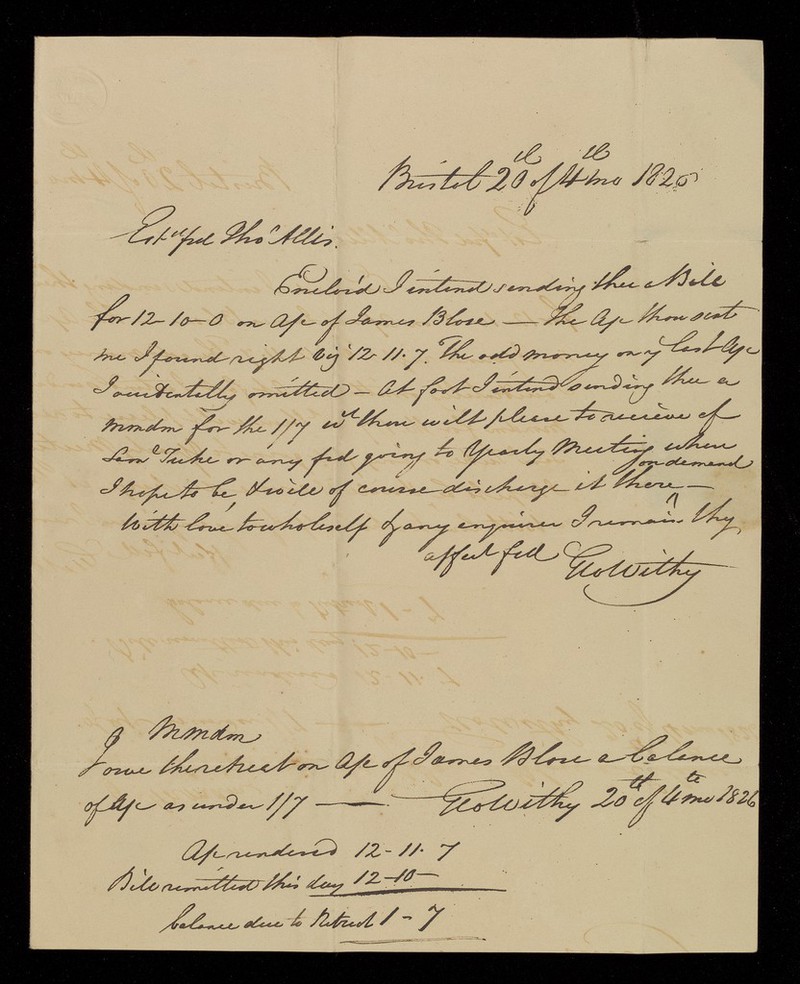 Bristol 20th of 4th mo 1826
Estd frd Thos Allis.
Enclos'd I intend sending thee a Bill
for 12-10-0 on a/c of James Blose — The a/c thou sent
me I found right viz 12-11-7. The odd money on ye last a/c
I accidentally omitted — At foot I intend sending thee a
mmdm for the 1/7 wch thou wilt please to recieve of
Saml Tuke or any frd going to Yearly Meeting when
on demand
I hope to be, & will of course discharge it there —
With love to wholeself & any enquirer I remain thy
affect frd Geo Withy
Mmdm
I owe the retreat on a/c of James Blose a balance
of a/c as under 1/7 — Geo Withy 20th of 4th mo 1826
A/c rendered 12-11-7
Bill remitted this day 12-10-
balance due to Retreat 1-7